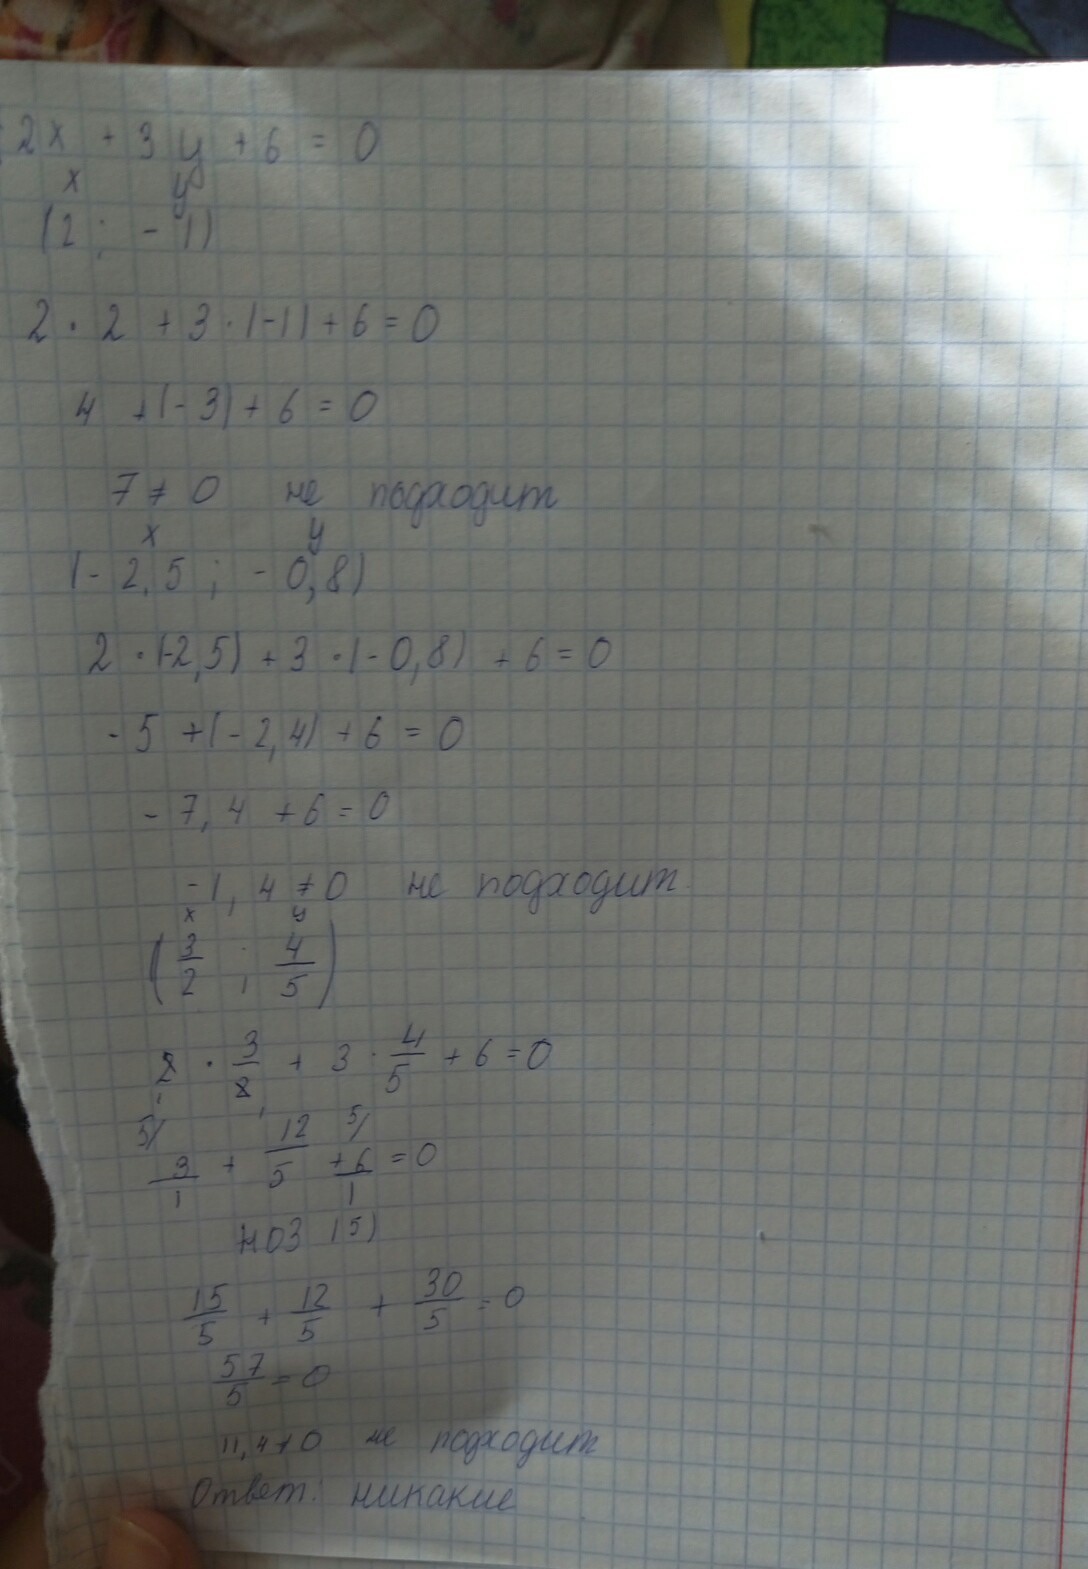 2x + 3y + 6 = 0
x y
(2; -1)
2 · 2 + 3 · (-1) + 6 = 0
4 + (-3) + 6 = 0
7 ≠ 0 не подходит
x y
(-2,5 ; -0,8)
2 · (-2,5) + 3 · (-0,8) + 6 = 0
-5 + (-2,4) + 6 = 0
-7,4 + 6 = 0
-1,4 ≠ 0 не подходит
x y
(3/2 ; 4/5)
2 · 3/2 + 3 · 4/5 + 6 = 0
5/ 5/
3/1 + 12/5 + 6/1 = 0
НОЗ (5)
15/5 + 12/5 + 30/5 = 0
57/5 = 0
11,4 ≠ 0 не подходит
Ответ: никакие